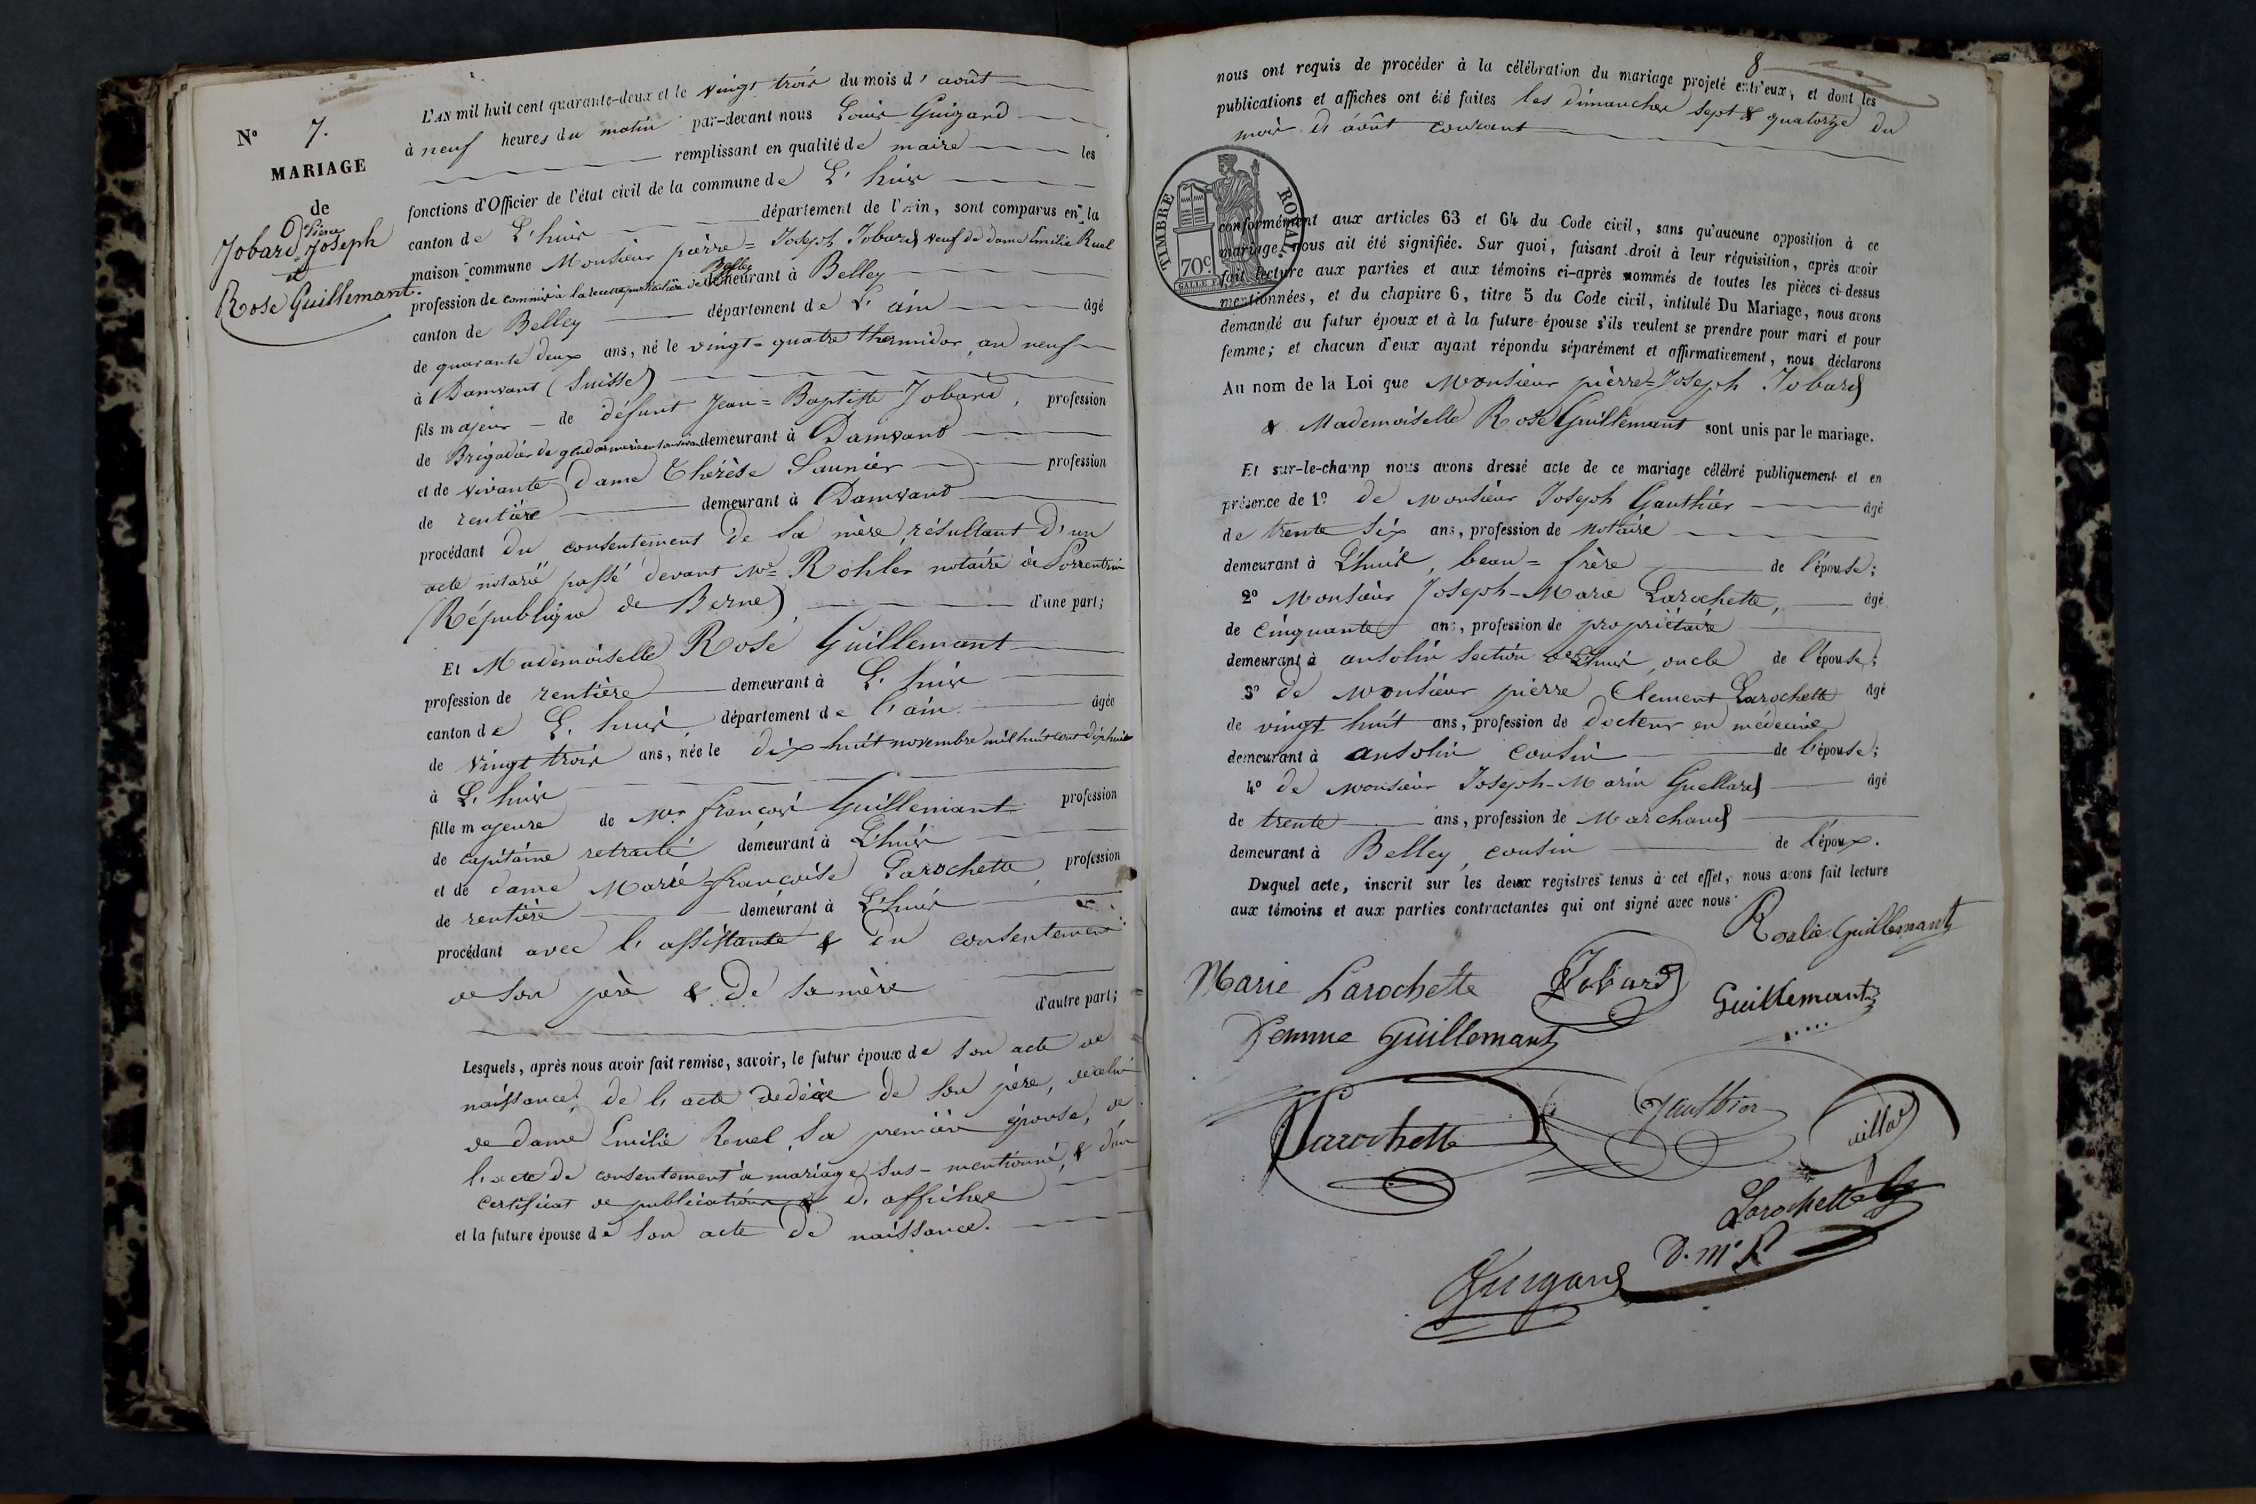 L'AN mil huit cent quarante-deux et le vingt trois du mois d'août
à neuf heures du matin par-devant nous Louis Guigard
remplissant en qualité de maire les
fonctions d'Officier de l'état civil de la commune de L'huis
canton de L'huis département de l'Ain, sont comparus en la
maison commune Monsieur pièrre=Joseph Jobard veuf de dame Emilie Ruel
profession de commis à la recette particulière de Belley demeurant à Belley
canton de Belley département de L'ain âgé
de quarante deux ans, né le vingt=quatre thermidor, an neuf
à Damvant (Suisse)
fils majeur de défunt Jean=Baptiste Jobard, profession
de Brigadier de gendarmerie demeurant à Damvant
et de vivante dame Thérèse Saunier profession
de rentière demeurant à Damvant
procédant du consentement de sa mère, résultant d'un
acte notarié passé devant Me Kohler notaire à Porrentrui
(République de Berne) d'une part;
Et Mademoiselle Rose Guillemant
profession de rentière demeurant à L'huis
canton de L'huis département de l'ain âgée
de vingt trois ans, née le dix-huit novembre mil huit cent dix huit
à L'huis
fille majeure de Mr françois Guillemant profession
de capitaine retraité demeurant à L'huis
et de dame Marie=françoise Larochette, profession
de rentière demeurant à L'huis
procédant avec l'assistante & du consentement
de son père & de sa mère
d'autre part;
Lesquels, après nous avoir fait remise, savoir, le futur époux de son acte de
naissance, de l'acte de décès de son père, de celui
de dame Emilie Revel sa première épouse, de
l'acte de consentement à mariage sus-mentionné, & d'un
certificat de publications & d'affiches
et la future épouse de son acte de naissance.
N° 7.
MARIAGE
de
Jobard Pièrre Joseph
et
Rose Guillemant.
8
nous ont requis de procéder à la célébration du mariage projeté entr'eux, et dont les
publications et affiches ont été faites les dimanches sept & quatorze du
mois d'août courant
TIMBRE ROYAL.
70c
conformément aux articles 63 et 64 du Code civil, sans qu'aucune opposition à ce
mariage, nous ait été signifiée. Sur quoi, faisant droit à leur réquisition, après avoir
fait lecture aux parties et aux témoins ci-après nommés de toutes les pièces ci-dessus
mentionnées, et du chapitre 6, titre 5 du Code civil, intitulé Du Mariage, nous avons
demandé au futur époux et à la future épouse s'ils veulent se prendre pour mari et pour
femme; et chacun d'eux ayant répondu séparément et affirmativement, nous déclarons
Au nom de la Loi que Monsieur pièrre=Joseph Jobard
& Mademoiselle Rose Guillemant sont unis par le mariage.
Et sur-le-champ nous avons dressé acte de ce mariage célébré publiquement et en
présence de 1° de Monsieur Joseph Gauthier âgé
de trente six ans, profession de notaire
demeurant à L'huis, beau=frère de l'épouse;
2° Monsieur Joseph-Marie Larochette, âgé
de cinquante ans, profession de propriétaire
demeurant à ansolin section de L'huis, oncle de l'épouse;
3° de Monsieur pierre Clement Larochette âgé
de vingt huit ans, profession de docteur en médecine
demeurant à ansolin cousin de l'épouse;
4° de Monsieur Joseph-Marin Guellard âgé
de trente ans, profession de Marchand
demeurant à Belley, cousin de l'époux.
Duquel acte, inscrit sur les deux registres tenus à cet effet, nous avons fait lecture
aux témoins et aux parties contractantes qui ont signé avec nous
Rosalie Guillemant
Marie Larochette Jobard Guillemant
femme Guillemant
Larochette Gauthier
Larochette
D. M. P.
Guigard